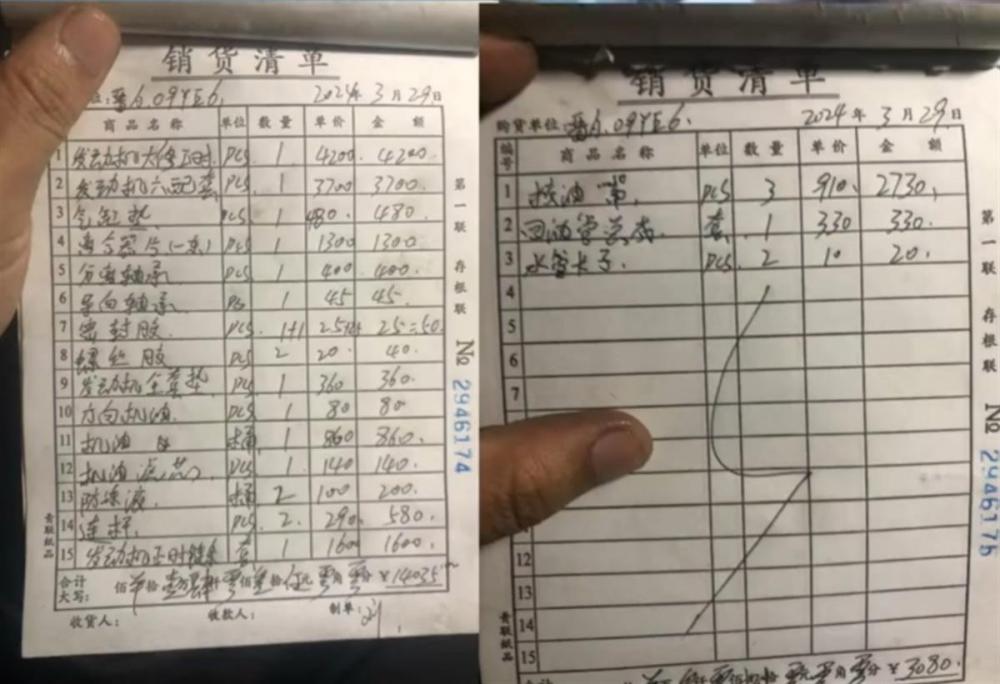 销货清单
晋A.09YE6. 2024年3月29日
商品名称 单位 数量 单价 金额
1 发动机大修 PCS 1 4200 4200.
2 发动机六配套 PCS 1 3700 3700.
3 气缸垫 PCS 1 480. 480.
4 离合器片(一套) PCS 1 1300 1300
5 分离轴承 PCS 1 400 400.
6 导向轴承 PCS 1 45 45.
7 密封胶 PCS 1+1 25=50.
8 螺丝胶 PCS 2 20. 40.
9 发动机全套垫 PCS 1 360 360.
10 方向机油 PCS 1 80 80
11 机油 桶 1 860 860.
12 机油滤芯 PCS 1 140 140.
13 防冻液 桶 2 100 200.
14 连杆 PCS 2. 290. 580.
15 发动机正时链条 套 1 1600 1600.
合计大写: 佰 拾壹万肆仟零佰叁拾伍元零角零分 ¥14035
收货人: 收款人: 制单:
第一联 存根联
№ 2946174
青联纸品
销货清单
购货单位:晋A.09YE6. 2024年3月29日
编号 商品名称 单位 数量 单价 金额
1 PCS 3 910. 2730.
2 回油管总成 套 1 330 330.
3 水管卡子. PCS 2 10 20.
4
5
6
7
12
13
14
15
零角零分 ¥3080.
第一联 存根联
№ 2946175
青联纸品